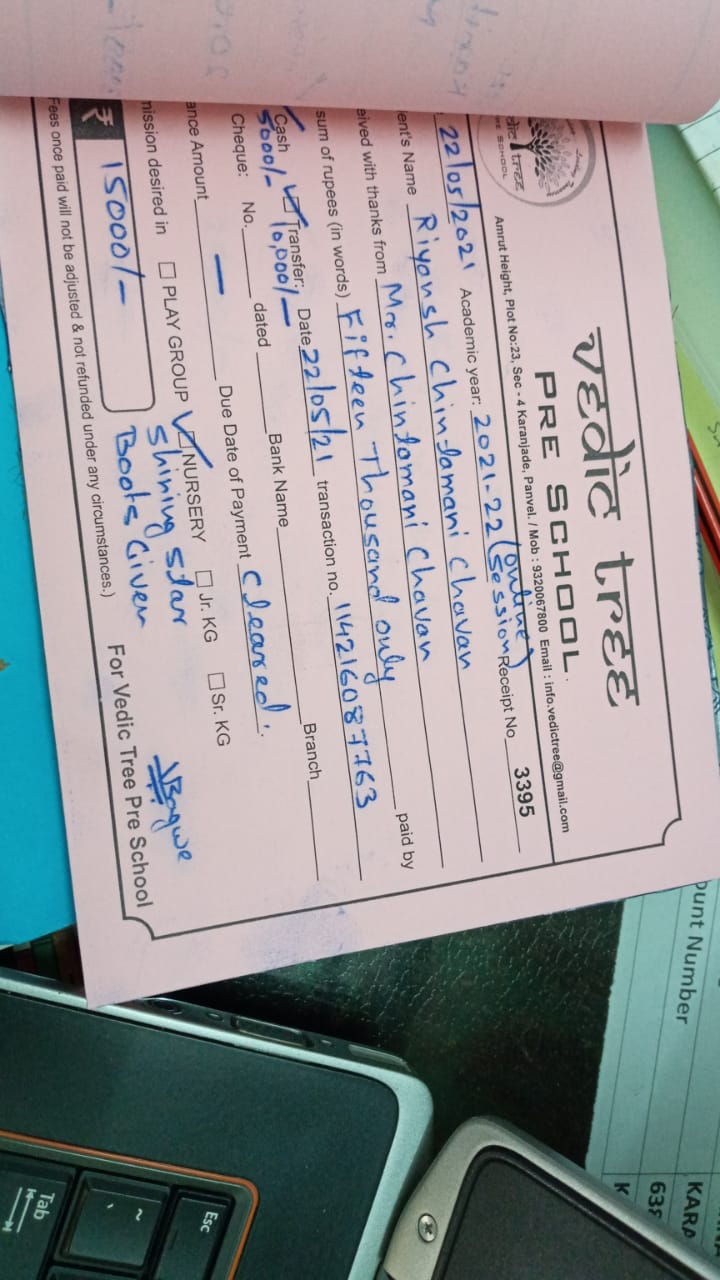 vedic tree
PRE SCHOOL
Amrut Height, Plot No:23, Sec - 4 Karanjade, Panvel. / Mob : 9320067800 Email : info.vedictree@gmail.com
22/05/2021 Academic year: 2021-22 (online session) Receipt No. 3395
ent's Name Riyansh Chintamani Chavan
eived with thanks from Mr. Chintamani Chavan paid by
sum of rupees (in words) Fifteen Thousand only
Cash Transfer: Date 22/05/21 transaction no. 114216087763
5000/- 10,000/-
Cheque: No. dated Bank Name Branch
ance Amount — Due Date of Payment Cleared.
mission desired in PLAY GROUP NURSERY Jr. KG Sr. KG
Shining star
₹ 15000/- Books Given
VBagwe
For Vedic Tree Pre School
Fees once paid will not be adjusted & not refunded under any circumstances.)
ount Number
KARA
638
K
Esc
~
Tab